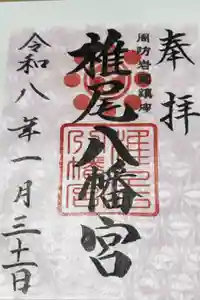 奉拝
周防岩国鎮座
椎尾八幡宮
令和八年一月三十一日